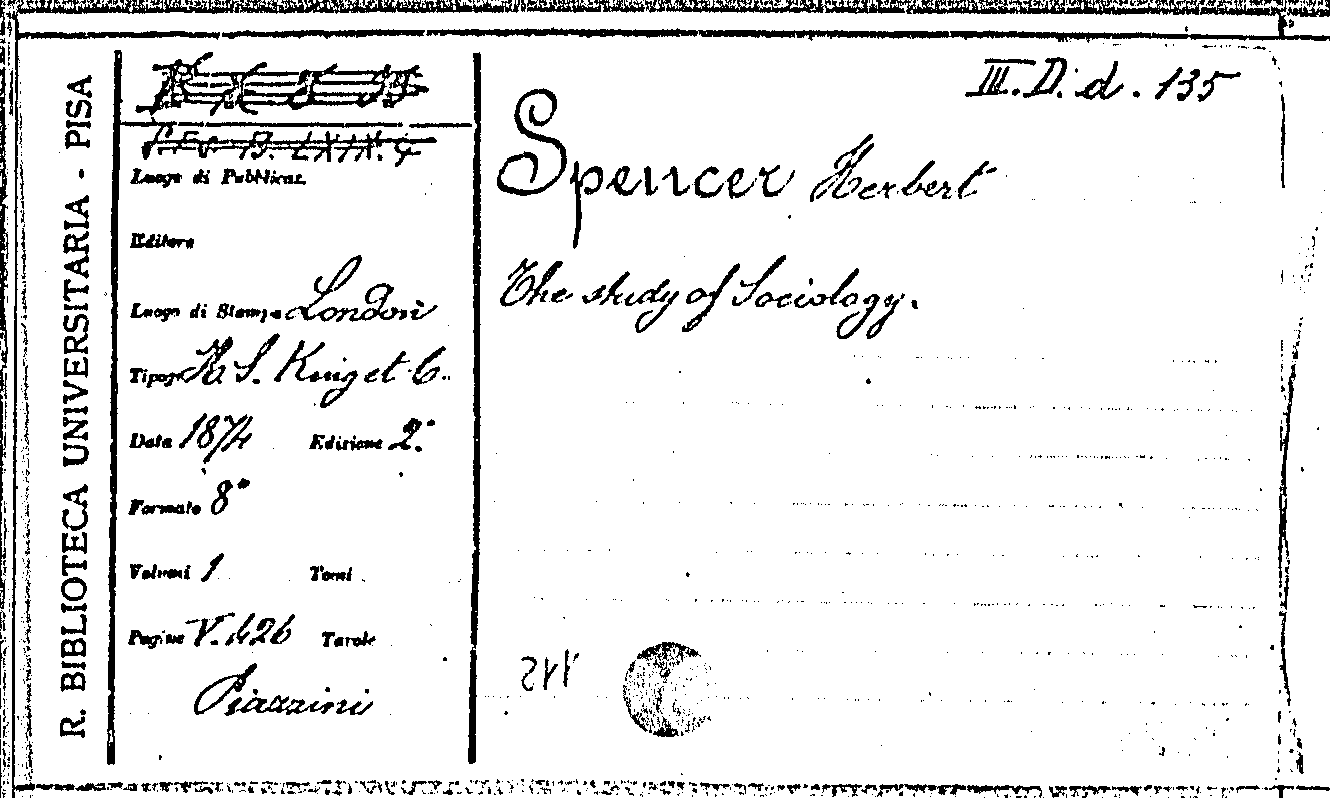 R. BIBLIOTECA UNIVERSITARIA - PISA
III. D. d. 135
Spencer Herbert
The study of Sociology.
Luogo di Pubblicaz.
Editore
Luogo di Stampa London
Tipogr. H. S. King et C.
Data 1874 Edizione 2.ª
Formato 8°
Volumi 1 Tomi
Pagine V. 426 Tavole
Piazzini